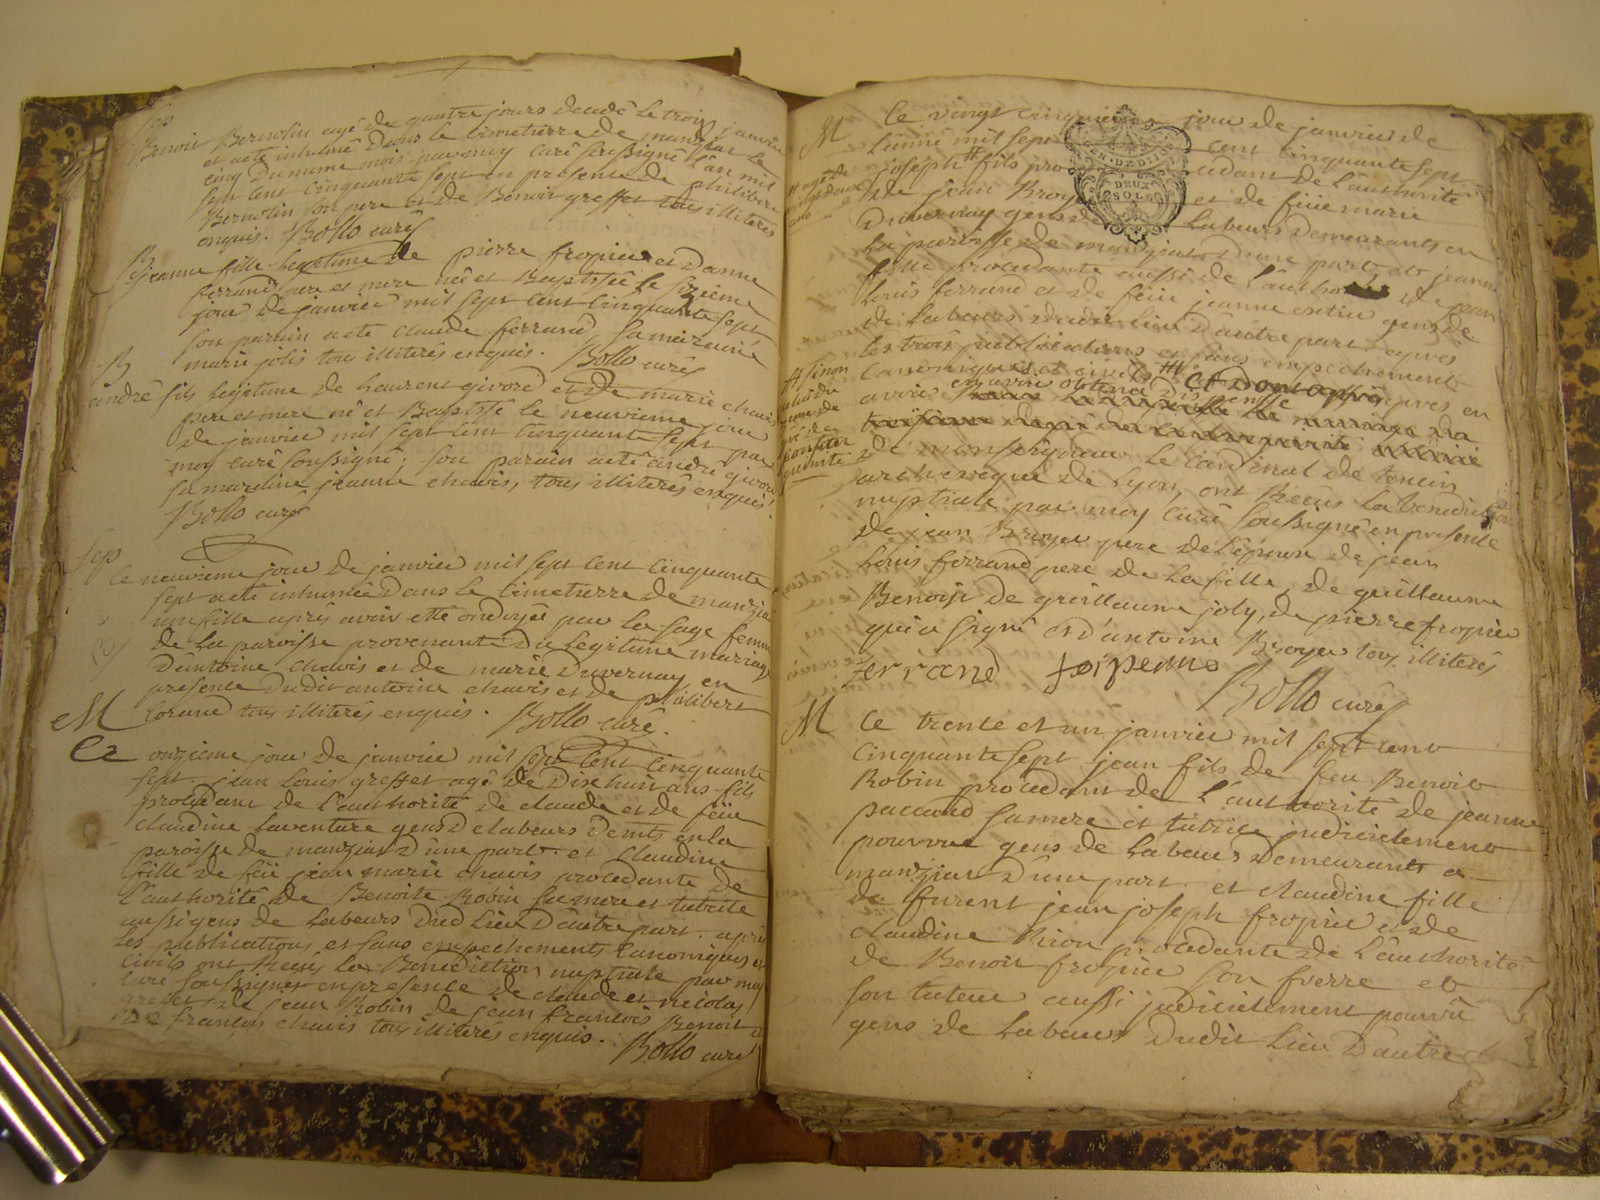 Sep
Benoit Bernolin agé de quatre jours decedé le trois janvier
et aeté inhumé Dans le Cimetierre de manziat le
cinq du meme mois par moy curé soussigné L'an mil
sept cent cinquante sept en presence de philibert
Bernolin son pere et de Benoit greffet tous illiterés
enquis. Bollo curé
B
jeanne fille legitime de pierre fropier et d'anne
ferrand pere et mere né et Baptisée le sixieme
jour de janvier mil sept cent cinquante sept
son parain aeté claude ferrand sa maraine
marie jolis tous illiterés enquis. Bollo curé
B
andré fils legitime de Laurent givord et de marie chavis
pere et mere né et Baptisé le neuvieme jour
de janvier mil sept cent cinquante sept par
moy curé soussigné; son parain aeté andré givord
sa maraine jeanne chavis, tous illiterés enquis.
Bollo curé
Sep
Le neuvieme jour de janvier mil sept cent cinquante
sept aeté inhumée Dans le Cimetierre de manziat
une fille aprés avoir etté ondoyée par la sage femme
de la paroisse provenante Du Legitime mariage
D'antoine chavis et de marie Duvernay en
presence Dudit antoine chavis et de philibert
Lorand tous illiterés enquis. Bollo curé.
M
Ce onzieme jour de janvier mil sept cent cinquante
sept. jean Louis greffet agé de Dixhuit ans fils
procedant de L'authorité de claude et de feüe
claudine Laventure gens de labeurs Demts en la
paroisse de manziat D'une part. et claudine
fille de feü jean marie chavis procedante de
L'authorité de Benoite Robin sa mere et tutrice
aussi gens de Labeurs Dud Lieu D'autre part. aprés
les publications et sans empechements canoniques et
civils ont Reçus la Benediction nuptiale par moy
curé soussigné en presence de claude et nicolas
greffet de jean Robin de jean françois Benoit
et françois chavis tous illiterés enquis.
Bollo curé
M
Ce vingt cinquieme jour de janvier de
L'année mil sept cent cinquante sept
joseph fils procedant de L'authorité
de jean Broyer et de feüe marie
Duvernay gens de Labeurs Demeurants en
la paroisse de manziat D'une part, et jeanne
fille procedante aussi de L'authorité de jean
Louis ferrand et de feüe jeanne gens de
de Labeurs dudit Lieu D'autre part. aprés
les trois publications et sans empechements
canoniques et civils
avoir obtenu Dispense
de monseigneur Le Cardinal de tencin
archeveque de Lyon, ont Reçus la Benediction
nuptiale par moy curé soussigné en presence
de jean Broyer pere de L'epoux de jean
Louis ferrand pere de La fille, de guillaume
Benoist de guillaume joly, de pierre fropier
qui a signé et d'antoine Broyer tous illiterés
ferrand
Bollo curé
M
Ce trente et un janvier mil sept cent
cinquante sept jean fils de feu Benoit
Robin procedant de L'authorité de jeanne
paccaud sa mere et tutrice judicielement
pourvue gens de Labeurs Demeurants a
manziat D'une part. et claudine fille
de furent jean joseph fropier et de
claudine procedante de L'authorité
de Benoit fropier son frerre et
son tuteur aussi judicielement pourvû
gens de Labeurs Dudit Lieu D'autre
GEN. DE DIJON
DEUX
SOLS